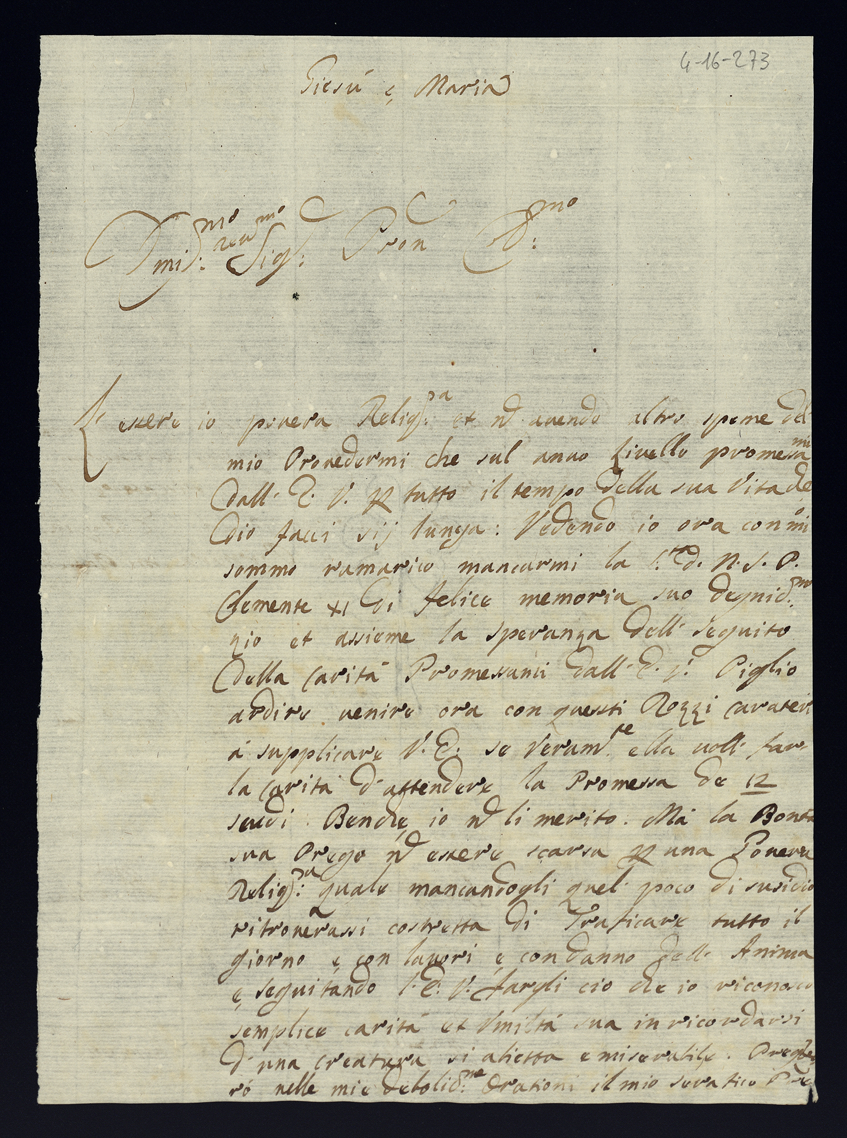 4-16-273
Giesú e Maria
Emi.mo reu.mo Sig. Pron C.mo
L' essere io povera Relig.sa et nō auendo altro speme del
mio Prouedermi che sul anuo Liuello promessomi
dall' E. V. p tutto il tempo della sua Vita che
Dio facci sij lunga: Vedendo io ora con mio
sommo ramarico mancarmi la S.tà d. N. S. P.
Clemente XI di felice memoria suo degnis.mo
zio et assieme la speranza dell' seguito
della Carità Promessami dall' E. V. Piglio
ardire uenire ora con questi Rozzi carateri
á supplicare V. E. se Veram.te ella uoll' far
la Carità d'attendere la Promessa de 12
scudi. Benche io nō li merito. Má la Bontà
sua Prego nō essere scarsa p una Pouera
Relig.sa quale mancandogli quel poco di susidio
ritrouerassi costretta di Traficare tutto il
giorno e con lauori e con danno dell' Anima
e seguitando l' E. V. fargli cio che io riconosco
semplice carità et Vmiltà sua in ricordarsi
d'una creatura si abietta e miserabile. Preghe
ró nelle mie debolis.me Orationi il mio serafico Pre